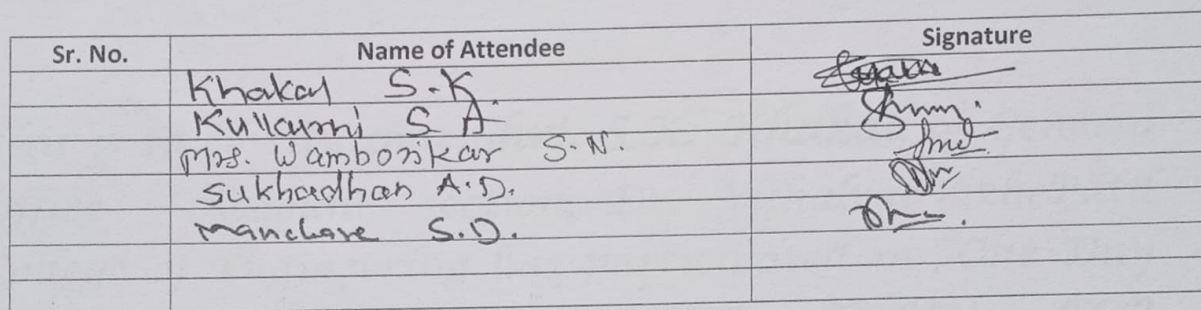 Sr. No. Name of Attendee Signature
Khakal S.K.
Kulkarni S A.
Mrs. Wamborikar S.N.
Sukhadhan A.D.
Manchare S.D.